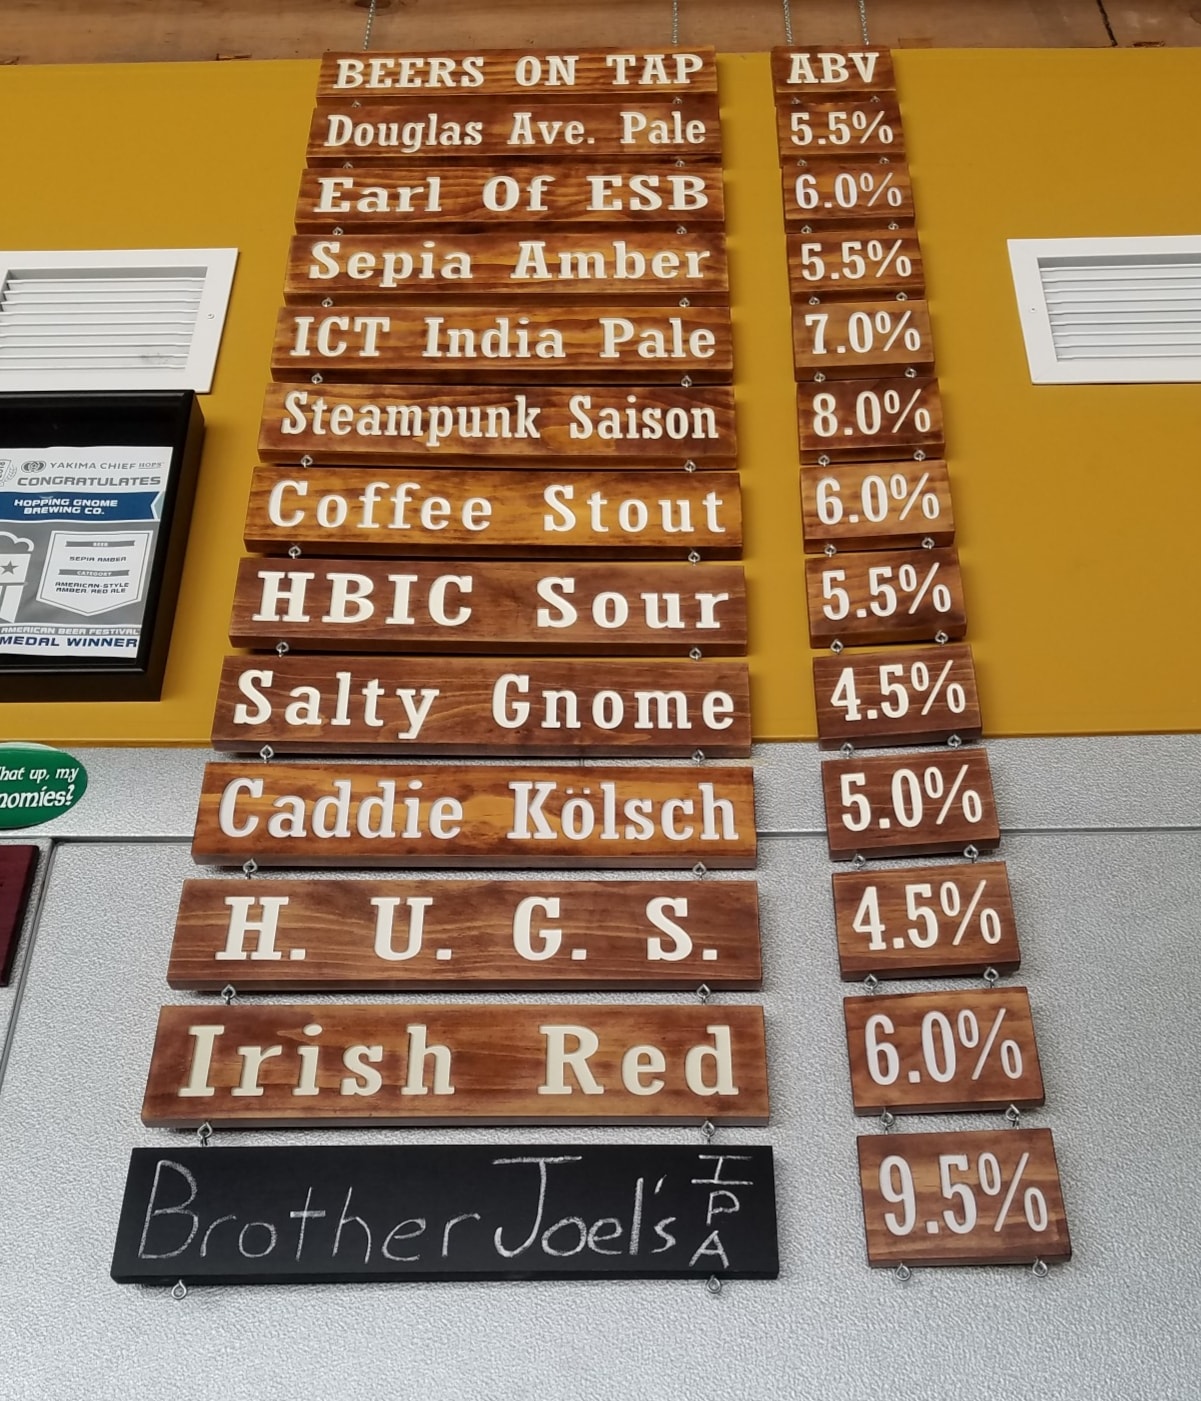 BEERS ON TAP ABV
Douglas Ave. Pale 5.5%
Earl Of ESB 6.0%
Sepia Amber 5.5%
ICT India Pale 7.0%
Steampunk Saison 8.0%
Coffee Stout 6.0%
HBIC Sour 5.5%
Salty Gnome 4.5%
Caddie Kölsch 5.0%
H. U. G. S. 4.5%
Irish Red 6.0%
Brother Joel's IPA 9.5%
YAKIMA CHIEF HOPS
CONGRATULATES
HOPPING GNOME
BREWING CO.
BEER
SEPIA AMBER
CATEGORY
AMERICAN-STYLE
AMBER/RED ALE
AMERICAN BEER FESTIVAL
MEDAL WINNER
hat up, my
nomies?